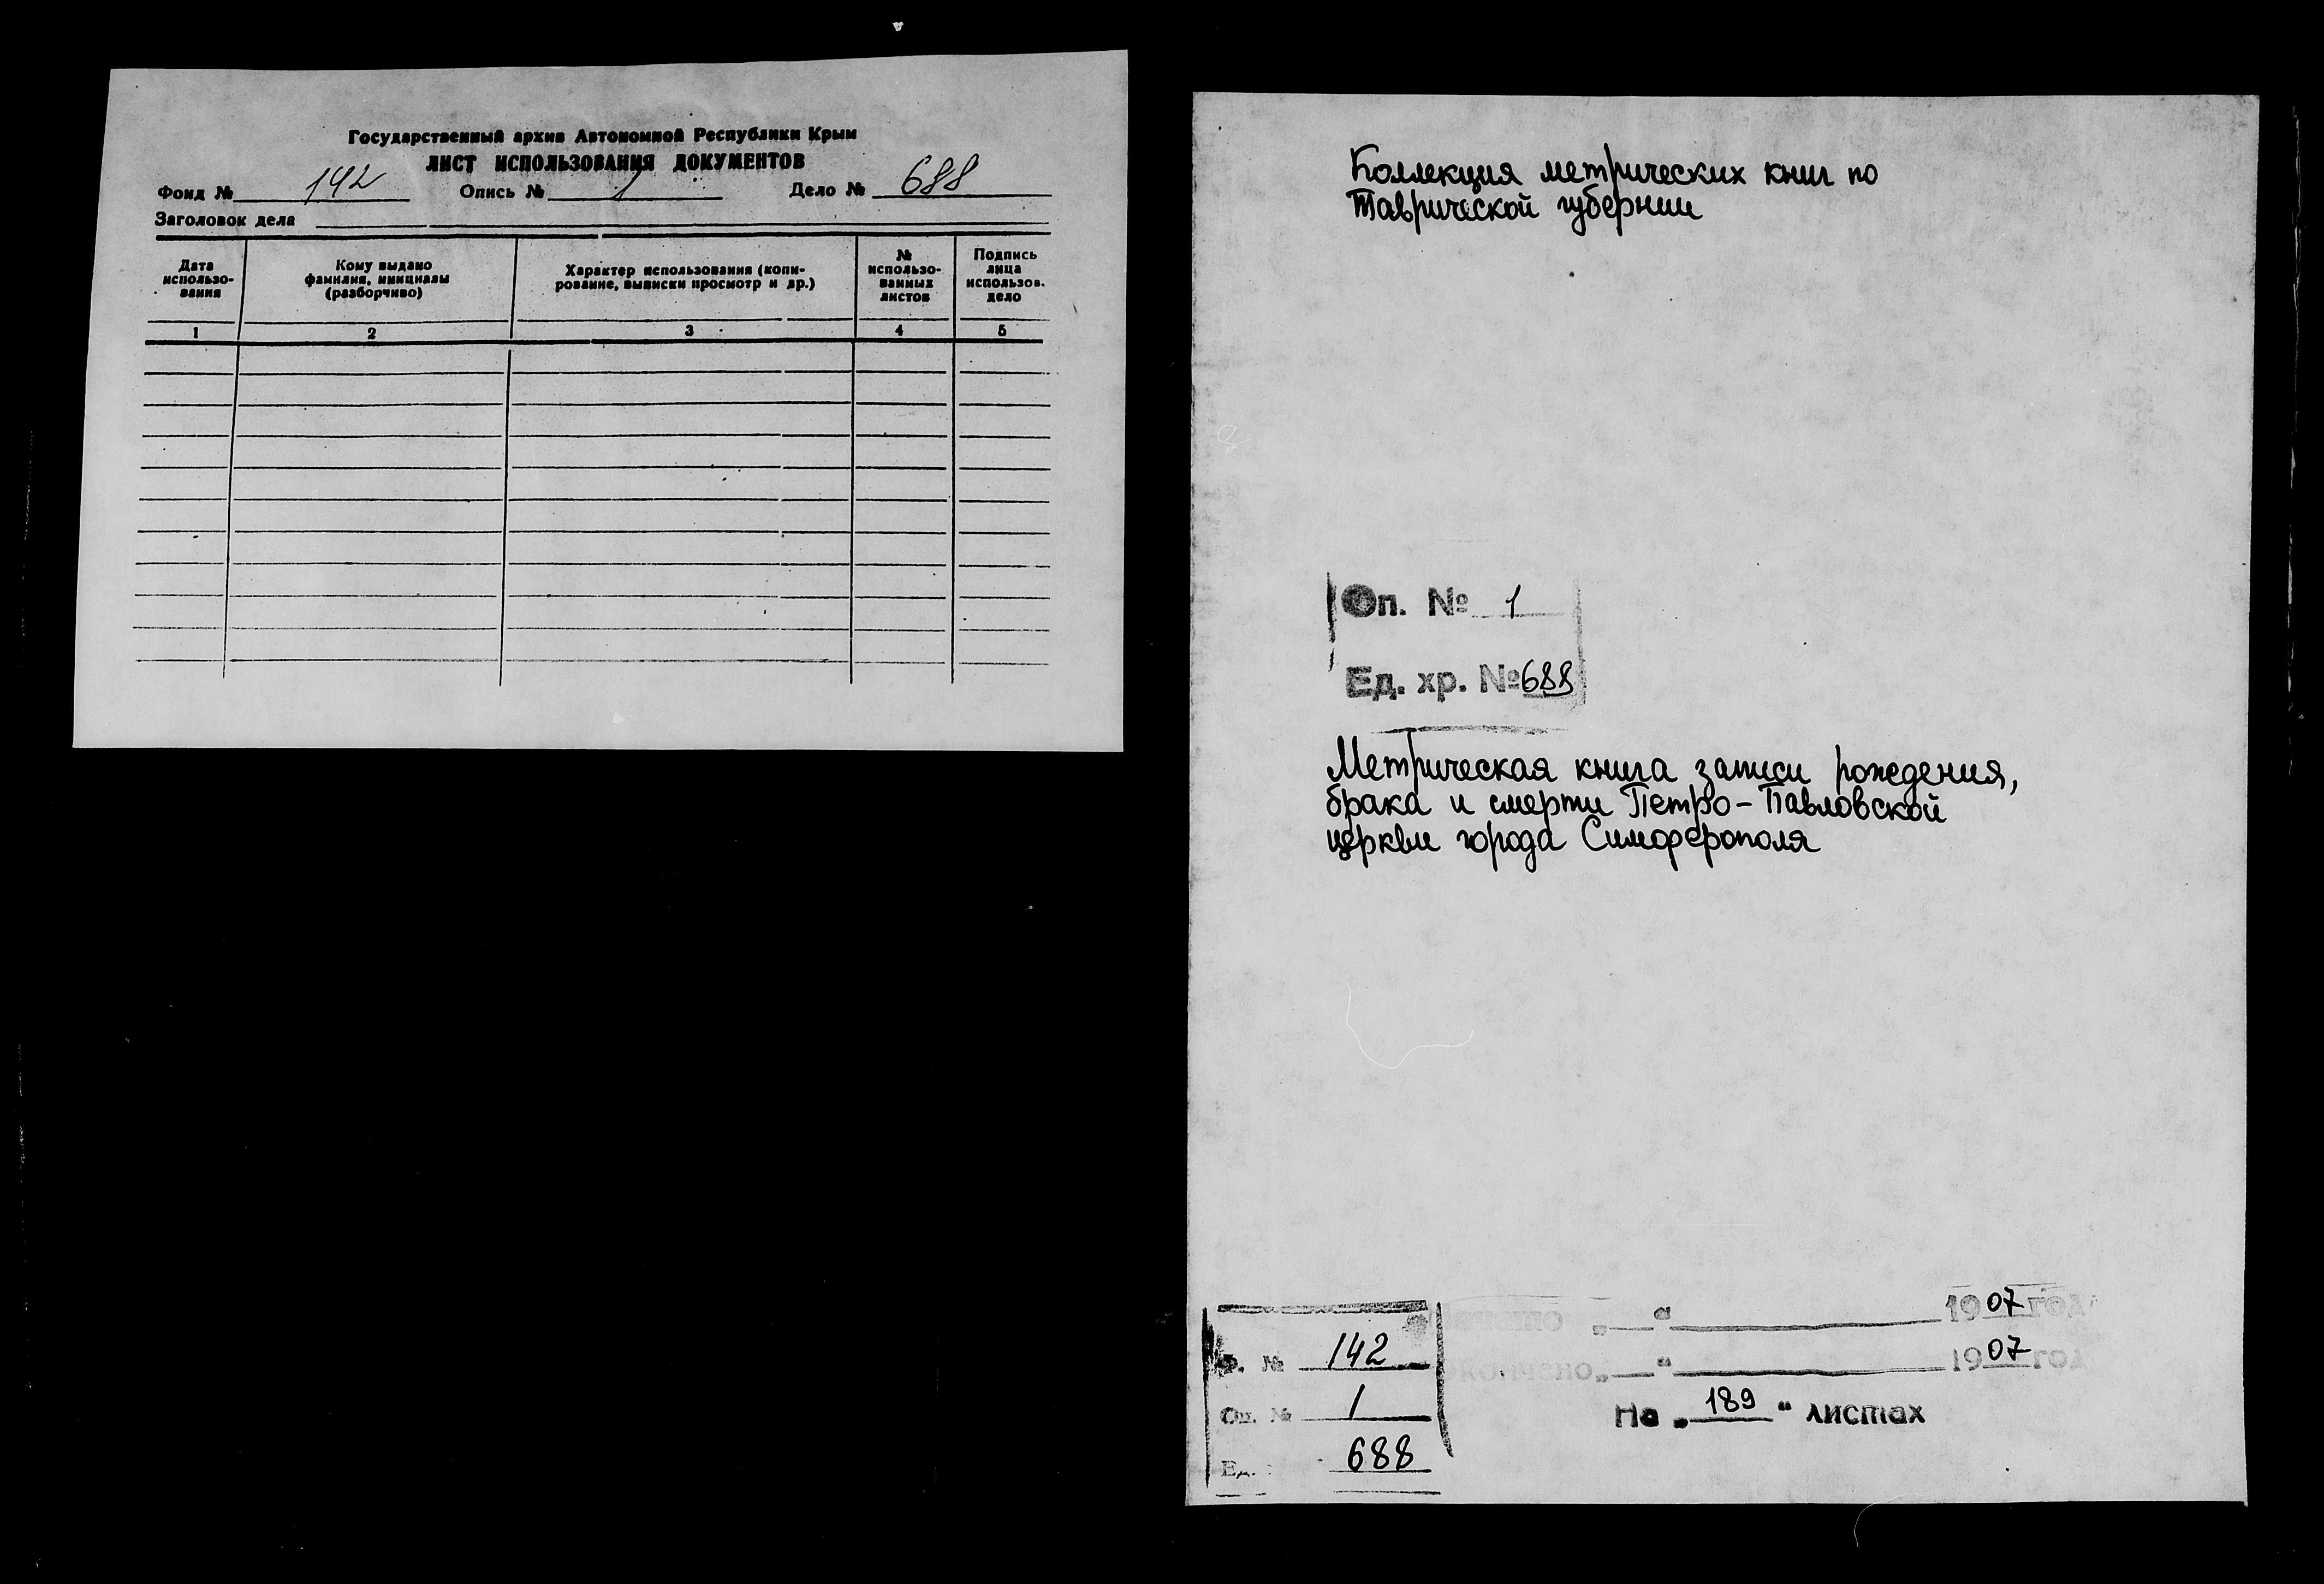 Государственный архив Автономной Республики Крым
ЛИСТ ИСПОЛЬЗОВАНИЯ ДОКУМЕНТОВ
Фонд № 142 Опись № 1 Дело № 688
Заголовок дела
Дата использо-вания
Кому выдано фамилия, инициалы (разборчиво)
Характер использования (копи-рование, выписки просмотр и др.)
№ использо-ванных листов
Подпись лица использов. дело
1 2 3 4 5
Коллекция метрических книг по
Таврической губернии
Оп. № 1
Ед. хр. № 688
Метрическая книга записи рождения,
брака и смерти Петро-Павловской
церкви города Симферополя
Ф. № 142
Оп. № 1
Ед. 688
„ “ 1907 год
кончено „ “ 1907 год
На „189“ листах